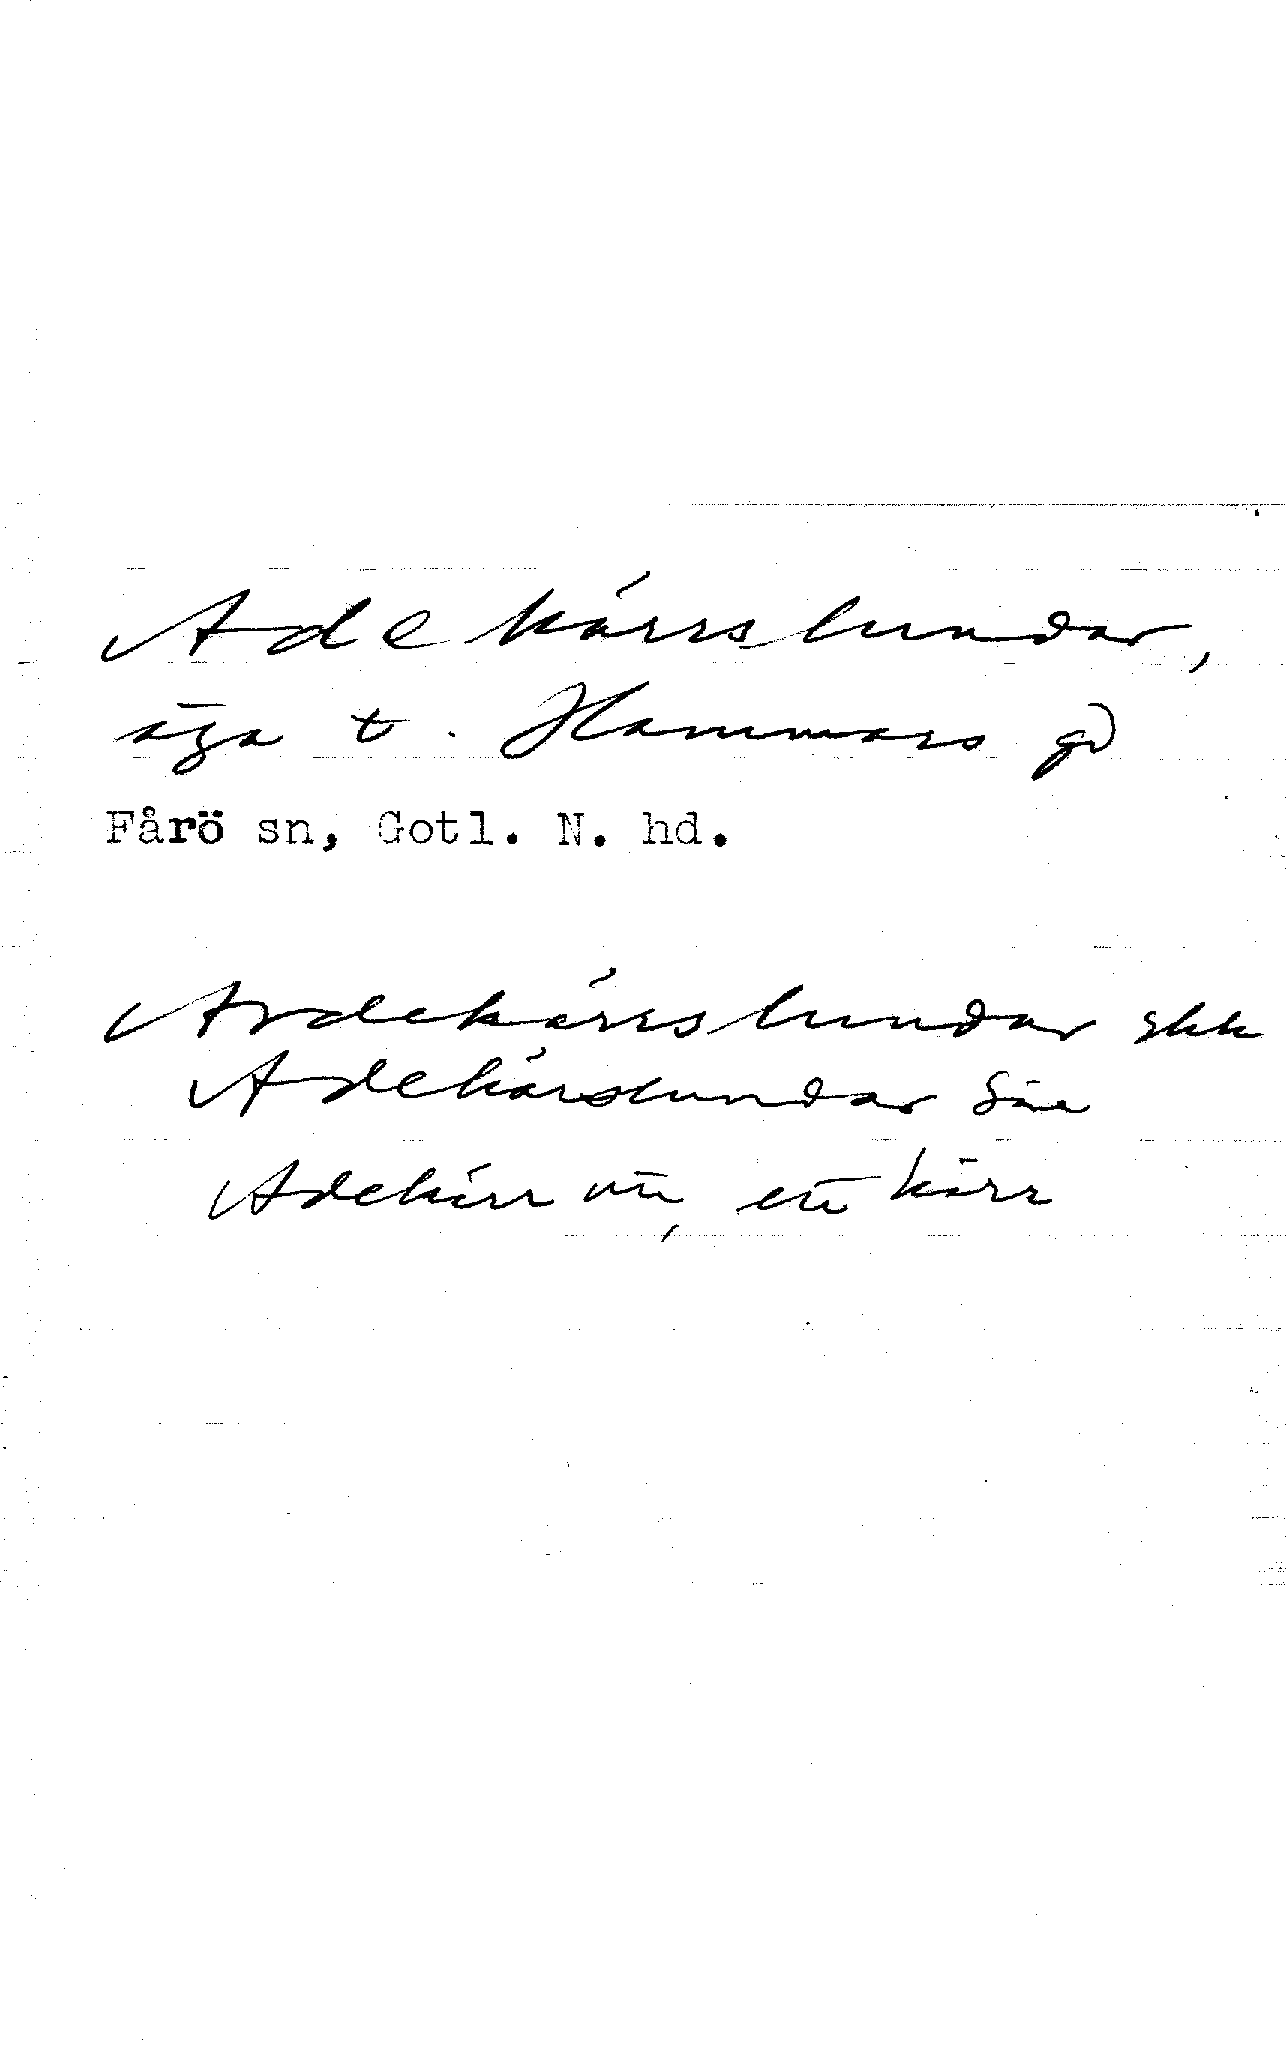 Adekärrslundar,
äga t. Hammars gd
Fårö sn, Gotl. N. hd.
Ardekärrslundar skk
Adekärslundar
Adekärr ett kärr